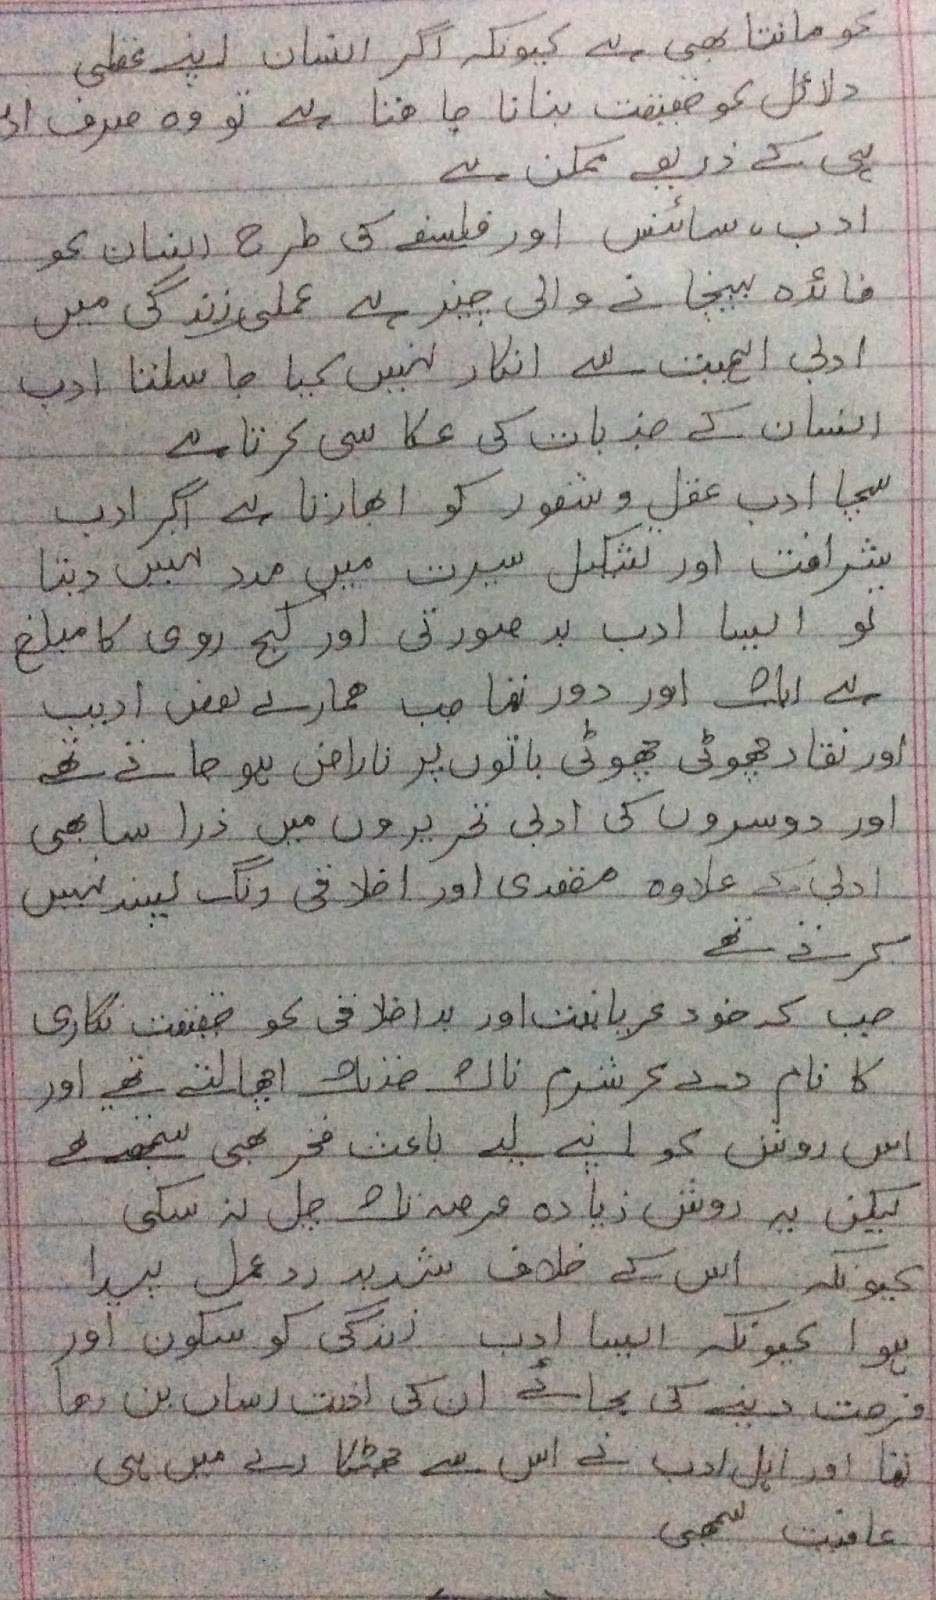 کو مانتا بھی ہے کیونکہ اگر انسان اپنے عقلی
دلائل کو حقیقت بنانا چاھتا ہے تو وہ صرف اد
ہی کے ذریعے ممکن ہے
ادب، سائنس اور فلسفے کی طرح انسان کو
فائدہ پہنچانے والی چیز ہے عملی زندگی میں
ادبی اہمیت سے انکار نہیں کیا جا سکتا ادب
انسان کے جذبات کی عکاسی کرتا ہے
سچا ادب عقل و شعور کو ابھارتا ہے اگر ادب
شرافت اور تشکیل سیرت میں مدد نہیں دیتا
تو ایسا ادب بد صورتی اور کج روی کا مبلغ
ہے ایک اور دور تھا جب ھمارے بعض ادیب
اور نقاد چھوٹی چھوٹی باتوں پر ناراض ہو جاتے تھے
اور دوسروں کی ادبی تحریروں میں ذرا سا بھی
ادبی کے علاوہ مقصدی اور اخلاقی رنگ پسند نہیں
کرتے تھے
جب کہ خود عریانیت اور بد اخلاقی کو حقیقت نگاری
کا نام دے کر شرم ناک جذبات اچھالتے تھے اور
اس روش کو اپنے لیے باعث فخر بھی سمجھتے تھے
لیکن یہ روش زیادہ عرصہ تک چل نہ سکی
کیونکہ اس کے خلاف شدید رد عمل پیدا
ہوا کیونکہ ایسا ادب زندگی کو سکون اور
فرحت دینے کی بجائے ان کی اذیت رساں بن رھا
تھا اور اہل ادب نے اس سے چھٹکارے میں ہی
عافیت سمجھی